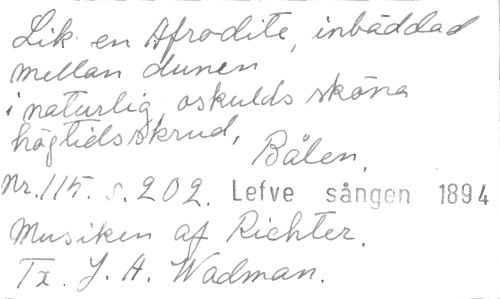 Lik en Afrodite, inbäddad
mellan dunen
i naturlig oskulds sköna
högtidsskrud,
Bålen.
Nr. 115. s. 202. Lefve sången 1894
Musiken af Richter.
Tx. J. A. Wadman.